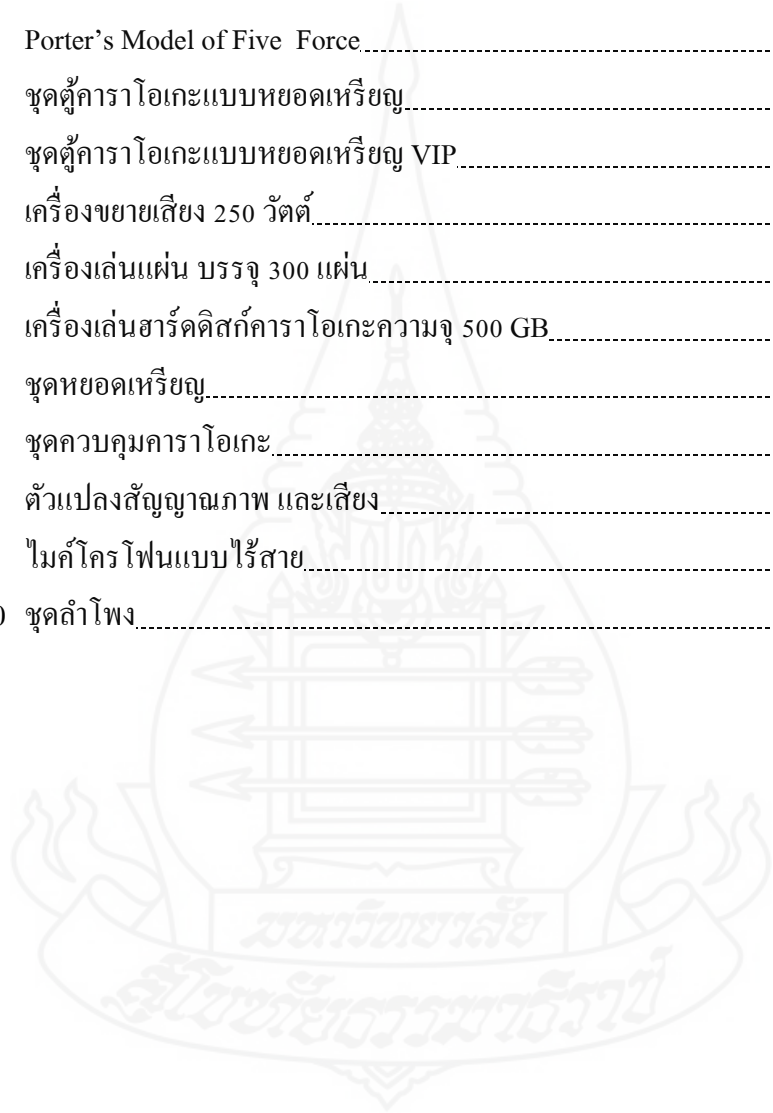 Porter’s Model of Five Force
ชุดตู้คาราโอเกะแบบหยอดเหรียญ
ชุดตู้คาราโอเกะแบบหยอดเหรียญ VIP
เครื่องขยายเสียง 250 วัตต์
เครื่องเล่นแผ่น บรรจุ 300 แผ่น
เครื่องเล่นฮาร์ดดิสก์คาราโอเกะความจุ 500 GB
ชุดหยอดเหรียญ
ชุดควบคุมคาราโอเกะ
ตัวแปลงสัญญาณภาพ และเสียง
ไมค์โครโฟนแบบไร้สาย
ชุดลำโพง
มหาวิทยาลัย
สุโขทัยธรรมาธิราช